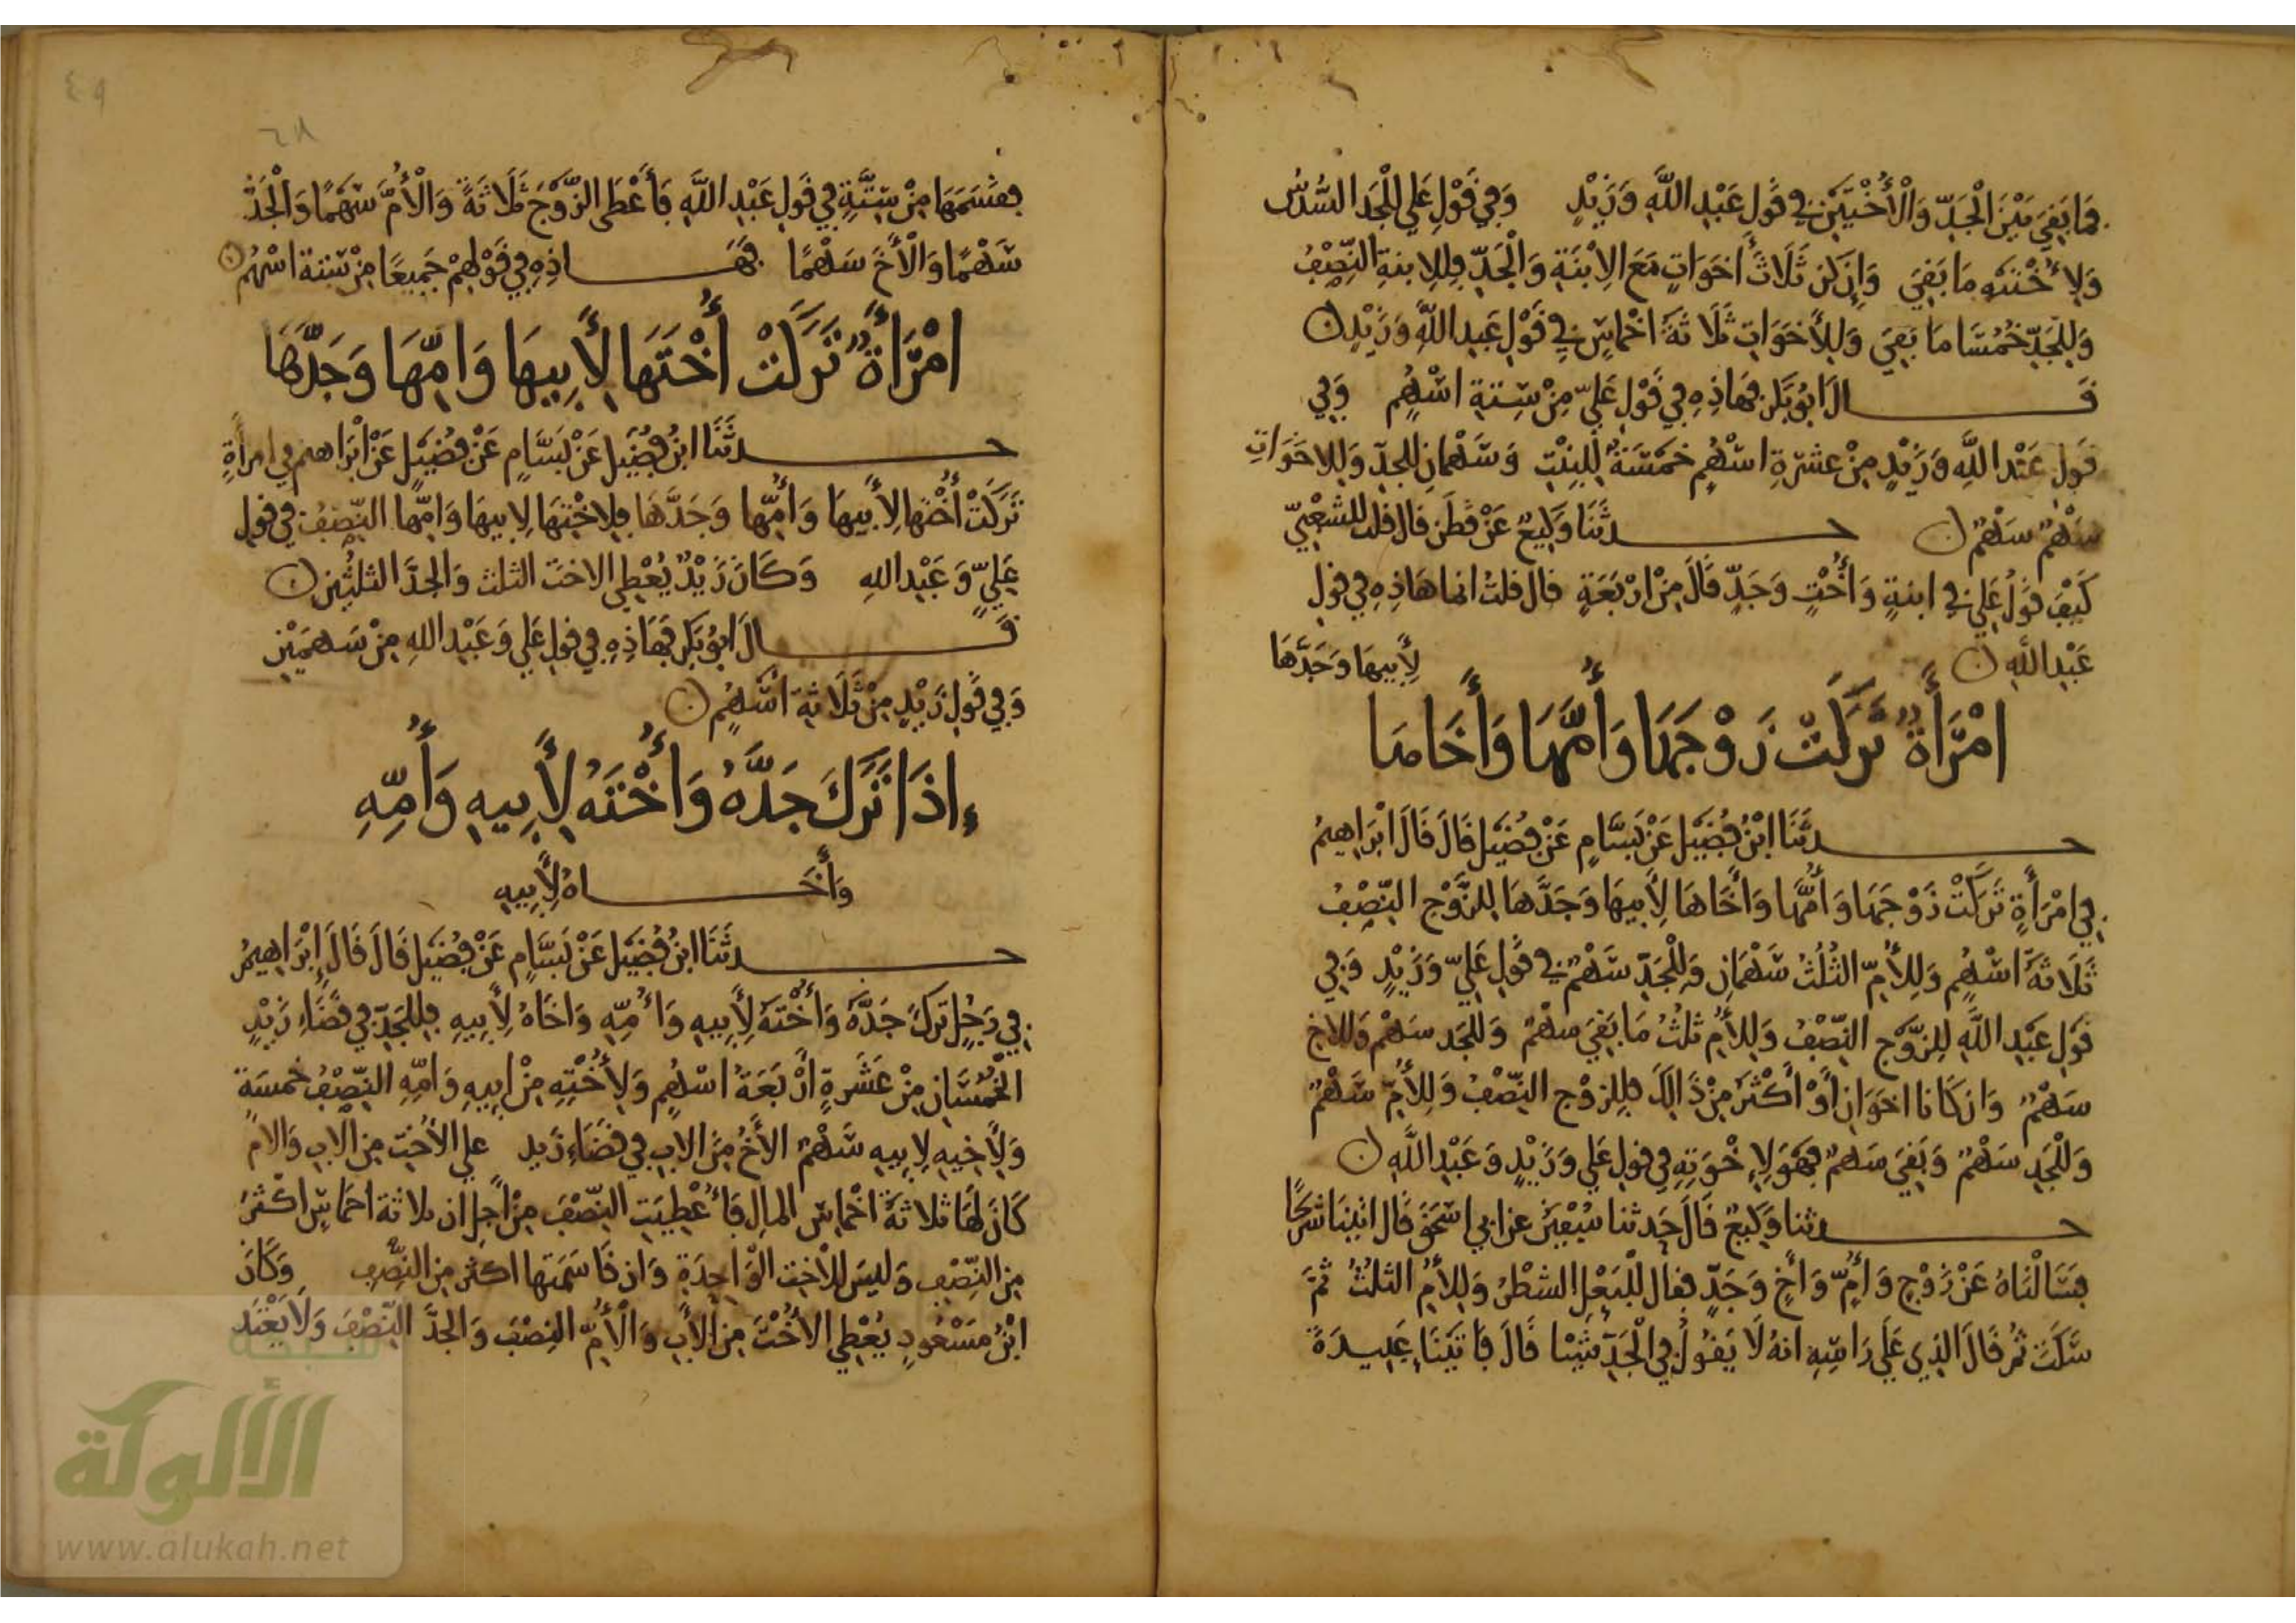 فما بقي بين الجد والأختين في قول عبد الله وزيد وفي قول علي للجد السدس
ولأختيه ما بقي وإن كن ثلاث أخوات مع الابنة والجد فللابنة النصف
وللجد خمسا ما بقي وللأخوات ثلاثة أخماس في قول عبد الله وزيد
قال أبو بكر فهاذه في قول علي من ستة أسهم وفي
قول عبد الله وزيد من عشرة أسهم خمسة للبنت وسهمان للجد وللاخوات
سهم سهم حدثنا وكيع عن فطر قال قلت للشعبي
كيف قول علي في ابنة وأخت وجد قال من أربعة قال قلت انما هاذه في قول
عبد الله
امْرَأَةٌ تَرَكَتْ زَوْجَهَا وَأُمَّهَا وَأَخَاهَا لِأَبِيهَا وَجَدَّهَا
حدثنا ابن فضيل عن بسام عن فضيل قال قال ابراهيم
في امرأة تركت زوجها وأمها وأخاها لأبيها وجدها للزوج النصف
ثلاثة أسهم وللأم الثلث سهمان وللجد سهم في قول علي وزيد وفي
قول عبد الله للزوج النصف وللأم ثلث ما بقي سهم وللجد سهم وللاخ
سهم وان كانا اخوان أو أكثر من ذالك فللزوج النصف وللأم سهم
وللجد سهم وبقي سهم فهو لإخوته في قول علي وزيد وعبد الله
حدثنا وكيع قال حدثنا سفيان عن ابي اسحق قال اتينا شريحا
فسألناه عن زوج وأم وأخ وجد فقال للبعل الشطر وللأم الثلث ثم
سكت ثم قال الذي على رأسه انه لا يقول في الجد شيئا قال فأتينا عبيدة
فقسمها من ستة في قول عبد الله فأعطى الزوج ثلاثة والأم سهما والجد
سهما والأخ سهما فهاذه في قولهم جميعا من ستة اسهم
امْرَأَةٌ تَرَكَتْ أُخْتَهَا لِأَبِيهَا وَامِّهَا وَجَدَّهَا
حدثنا ابن فضيل عن بسام عن فضيل عن ابراهيم في امرأة
تركت أختها لأبيها وأمها وجدها فلاختها لابيها وامها النصف في قول
علي وعبد الله وكان زيد يعطي الاخت الثلث والجد الثلثين
قال ابو بكر فهاذه في قول علي وعبد الله من سهمين
وفي قول زيد من ثلاثة أسهم
إذَا تَرَكَ جَدَّهُ وَأُخْتَهُ لِأَبِيهِ وَأُمِّهِ
وأخاه لأبيه
حدثنا ابن فضيل عن بسام عن فضيل قال قال إبراهيم
في رجل ترك جده وأخته لأبيه وأمه واخاه لأبيه فللجد في قضاء زيد
الخمسان من عشرة أربعة اسهم ولأخته من ابيه وامه النصف خمسة
ولأخيه لابيه سهم الأخ من الاب في قضاء زيد على الأخت من الاب والام
كان لها ثلاثة أخماس المال فأعطيت النصف من أجل ان ثلاثة اخماس اكثر
من النصف وليس للأخت الواحدة وان قاسمتها اكثر من النصف وكان
ابن مسعود يعطي الأخت من الأب والأم النصف والجد النصف ولا يعتد
شبكة
الألوكة
www.alukah.net